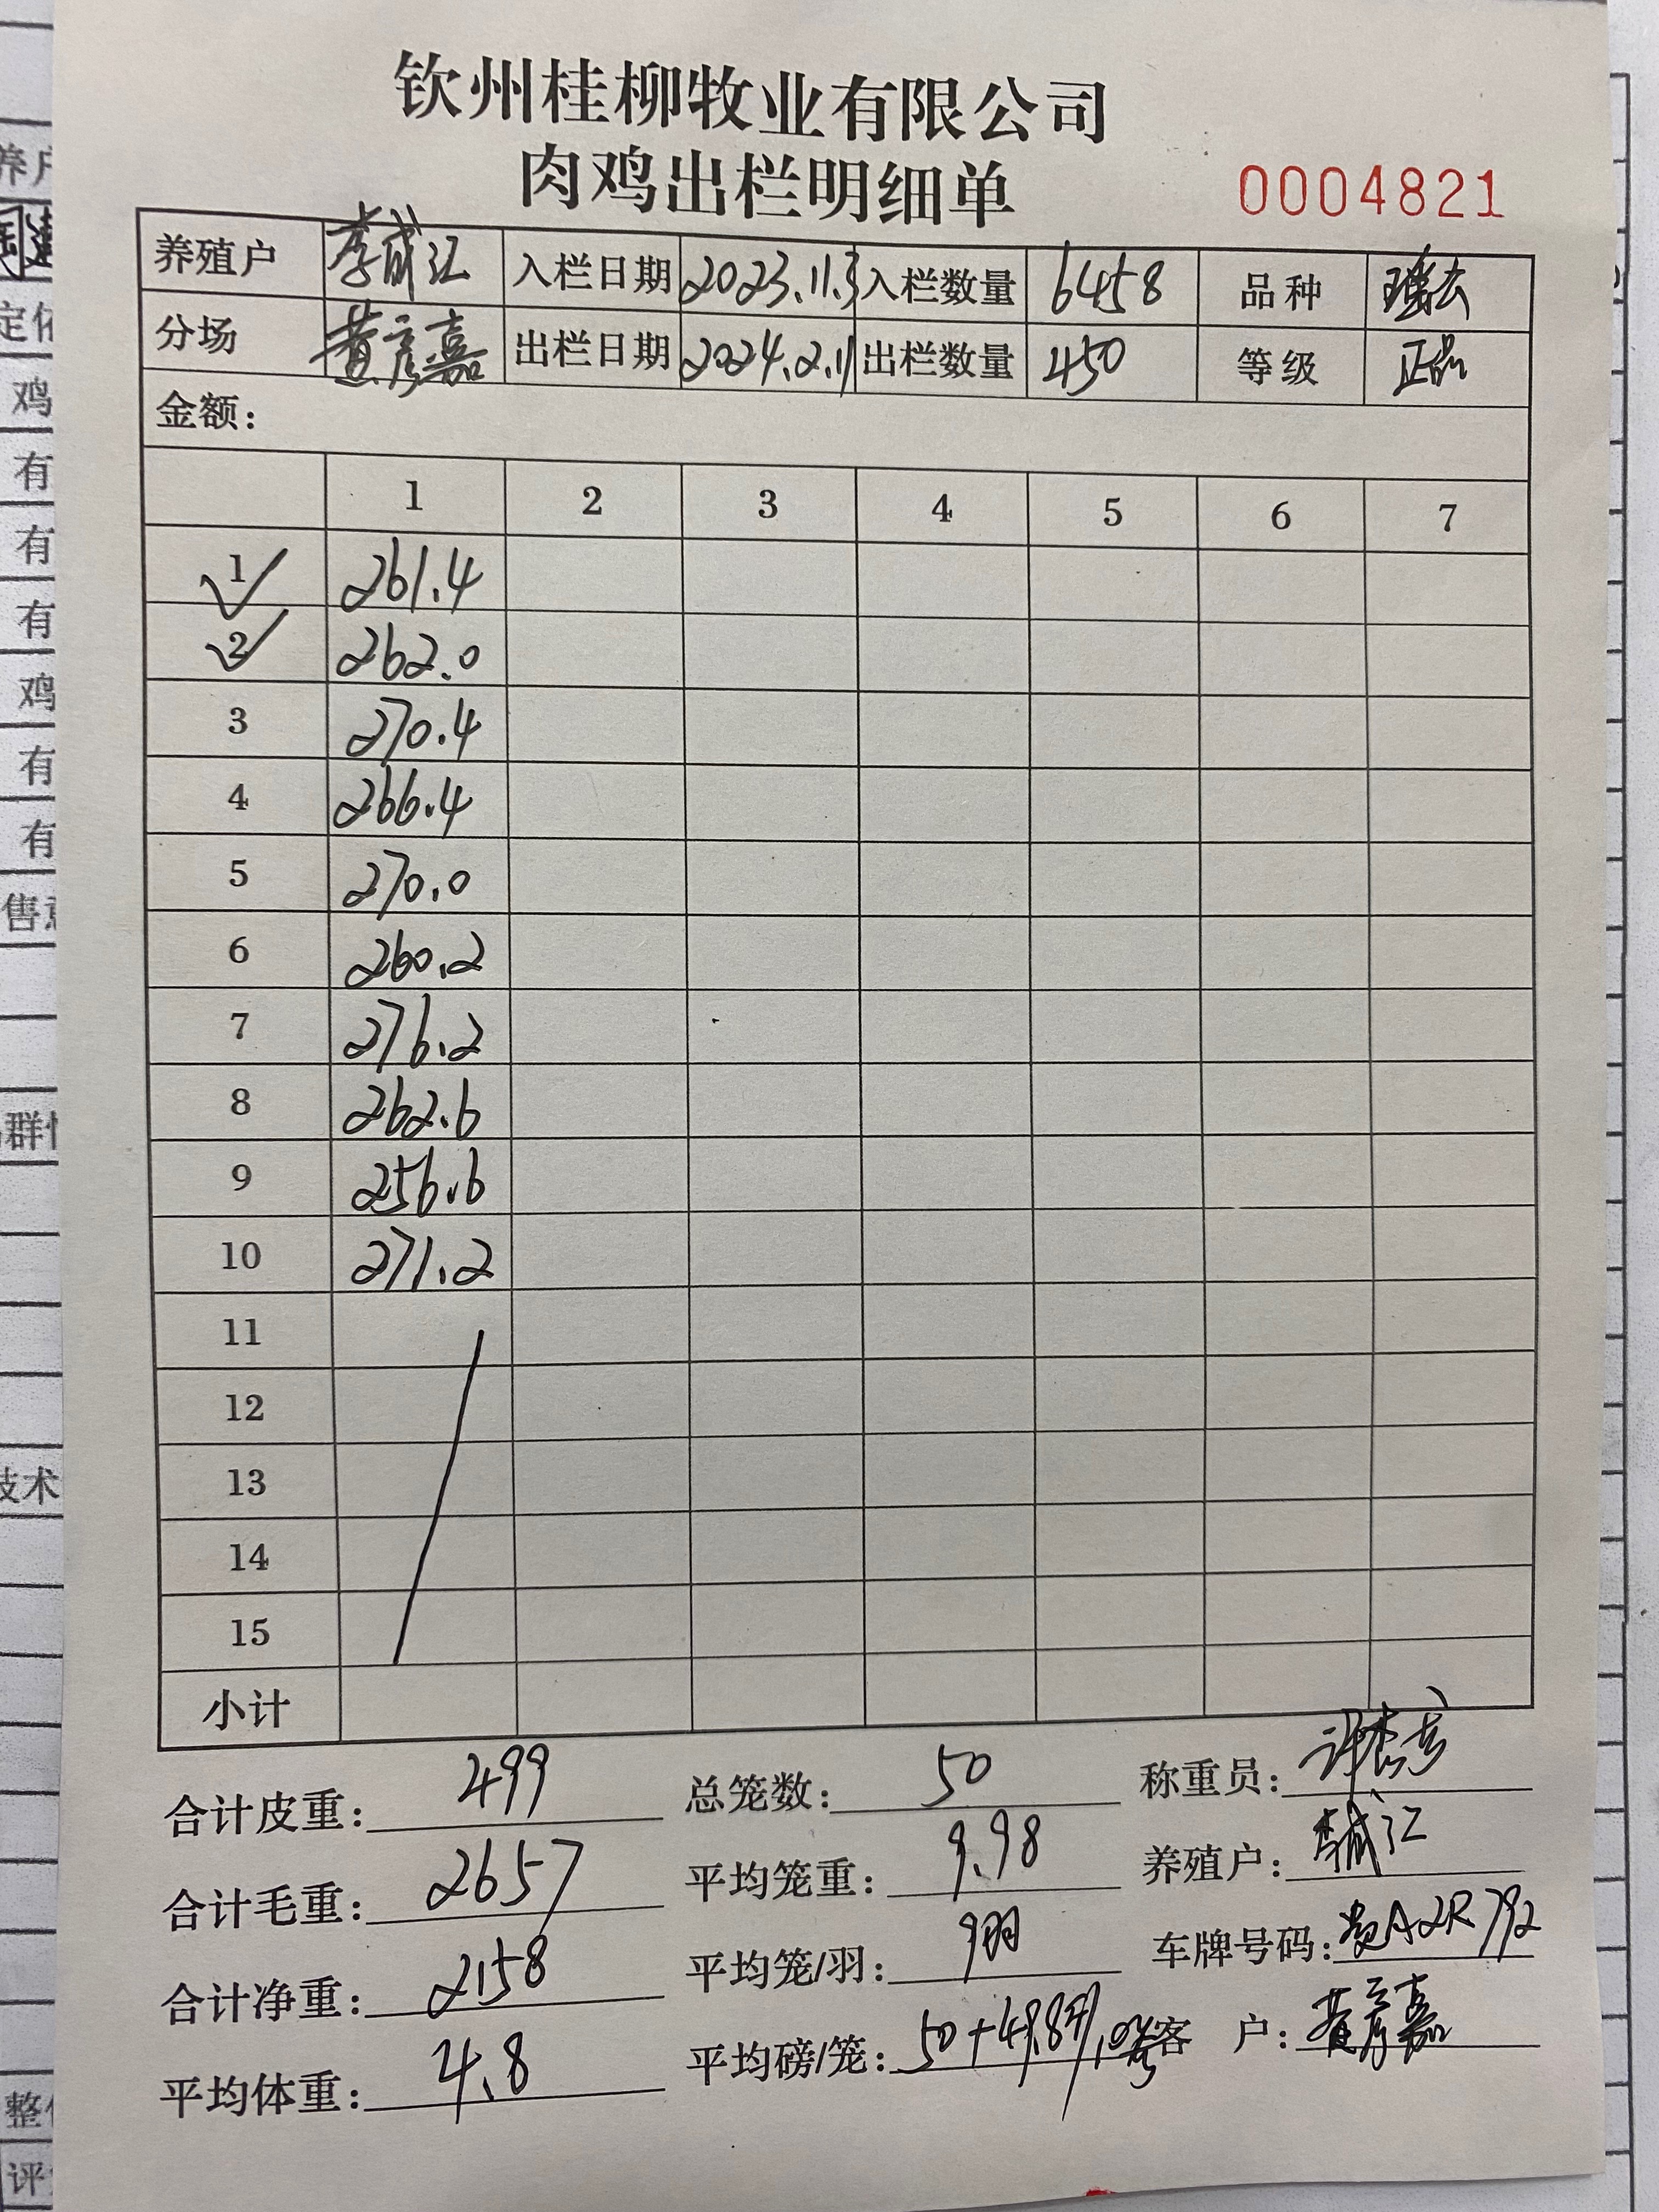 钦州桂柳牧业有限公司
肉鸡出栏明细单 0004821
养殖户 李成江 入栏日期 2023.11.3 入栏数量 6458 品种
分场 黄彦嘉 出栏日期 2024.2.11 出栏数量 450 等级 正品
金额:
1 2 3 4 5 6 7
1 261.4
2 262.0
3 270.4
4 266.4
5 270.0
6 260.2
7 276.2
8 262.6
9 256.6
10 271.2
11
12
13
14
15
小计
合计皮重: 499 总笼数: 50 称重员:
合计毛重: 2657 平均笼重: 9.98 养殖户: 李成江
合计净重: 2158 平均笼/羽: 9羽 车牌号码: 贵A2R792
平均体重: 4.8 平均磅/笼: 客 户: 黄彦嘉